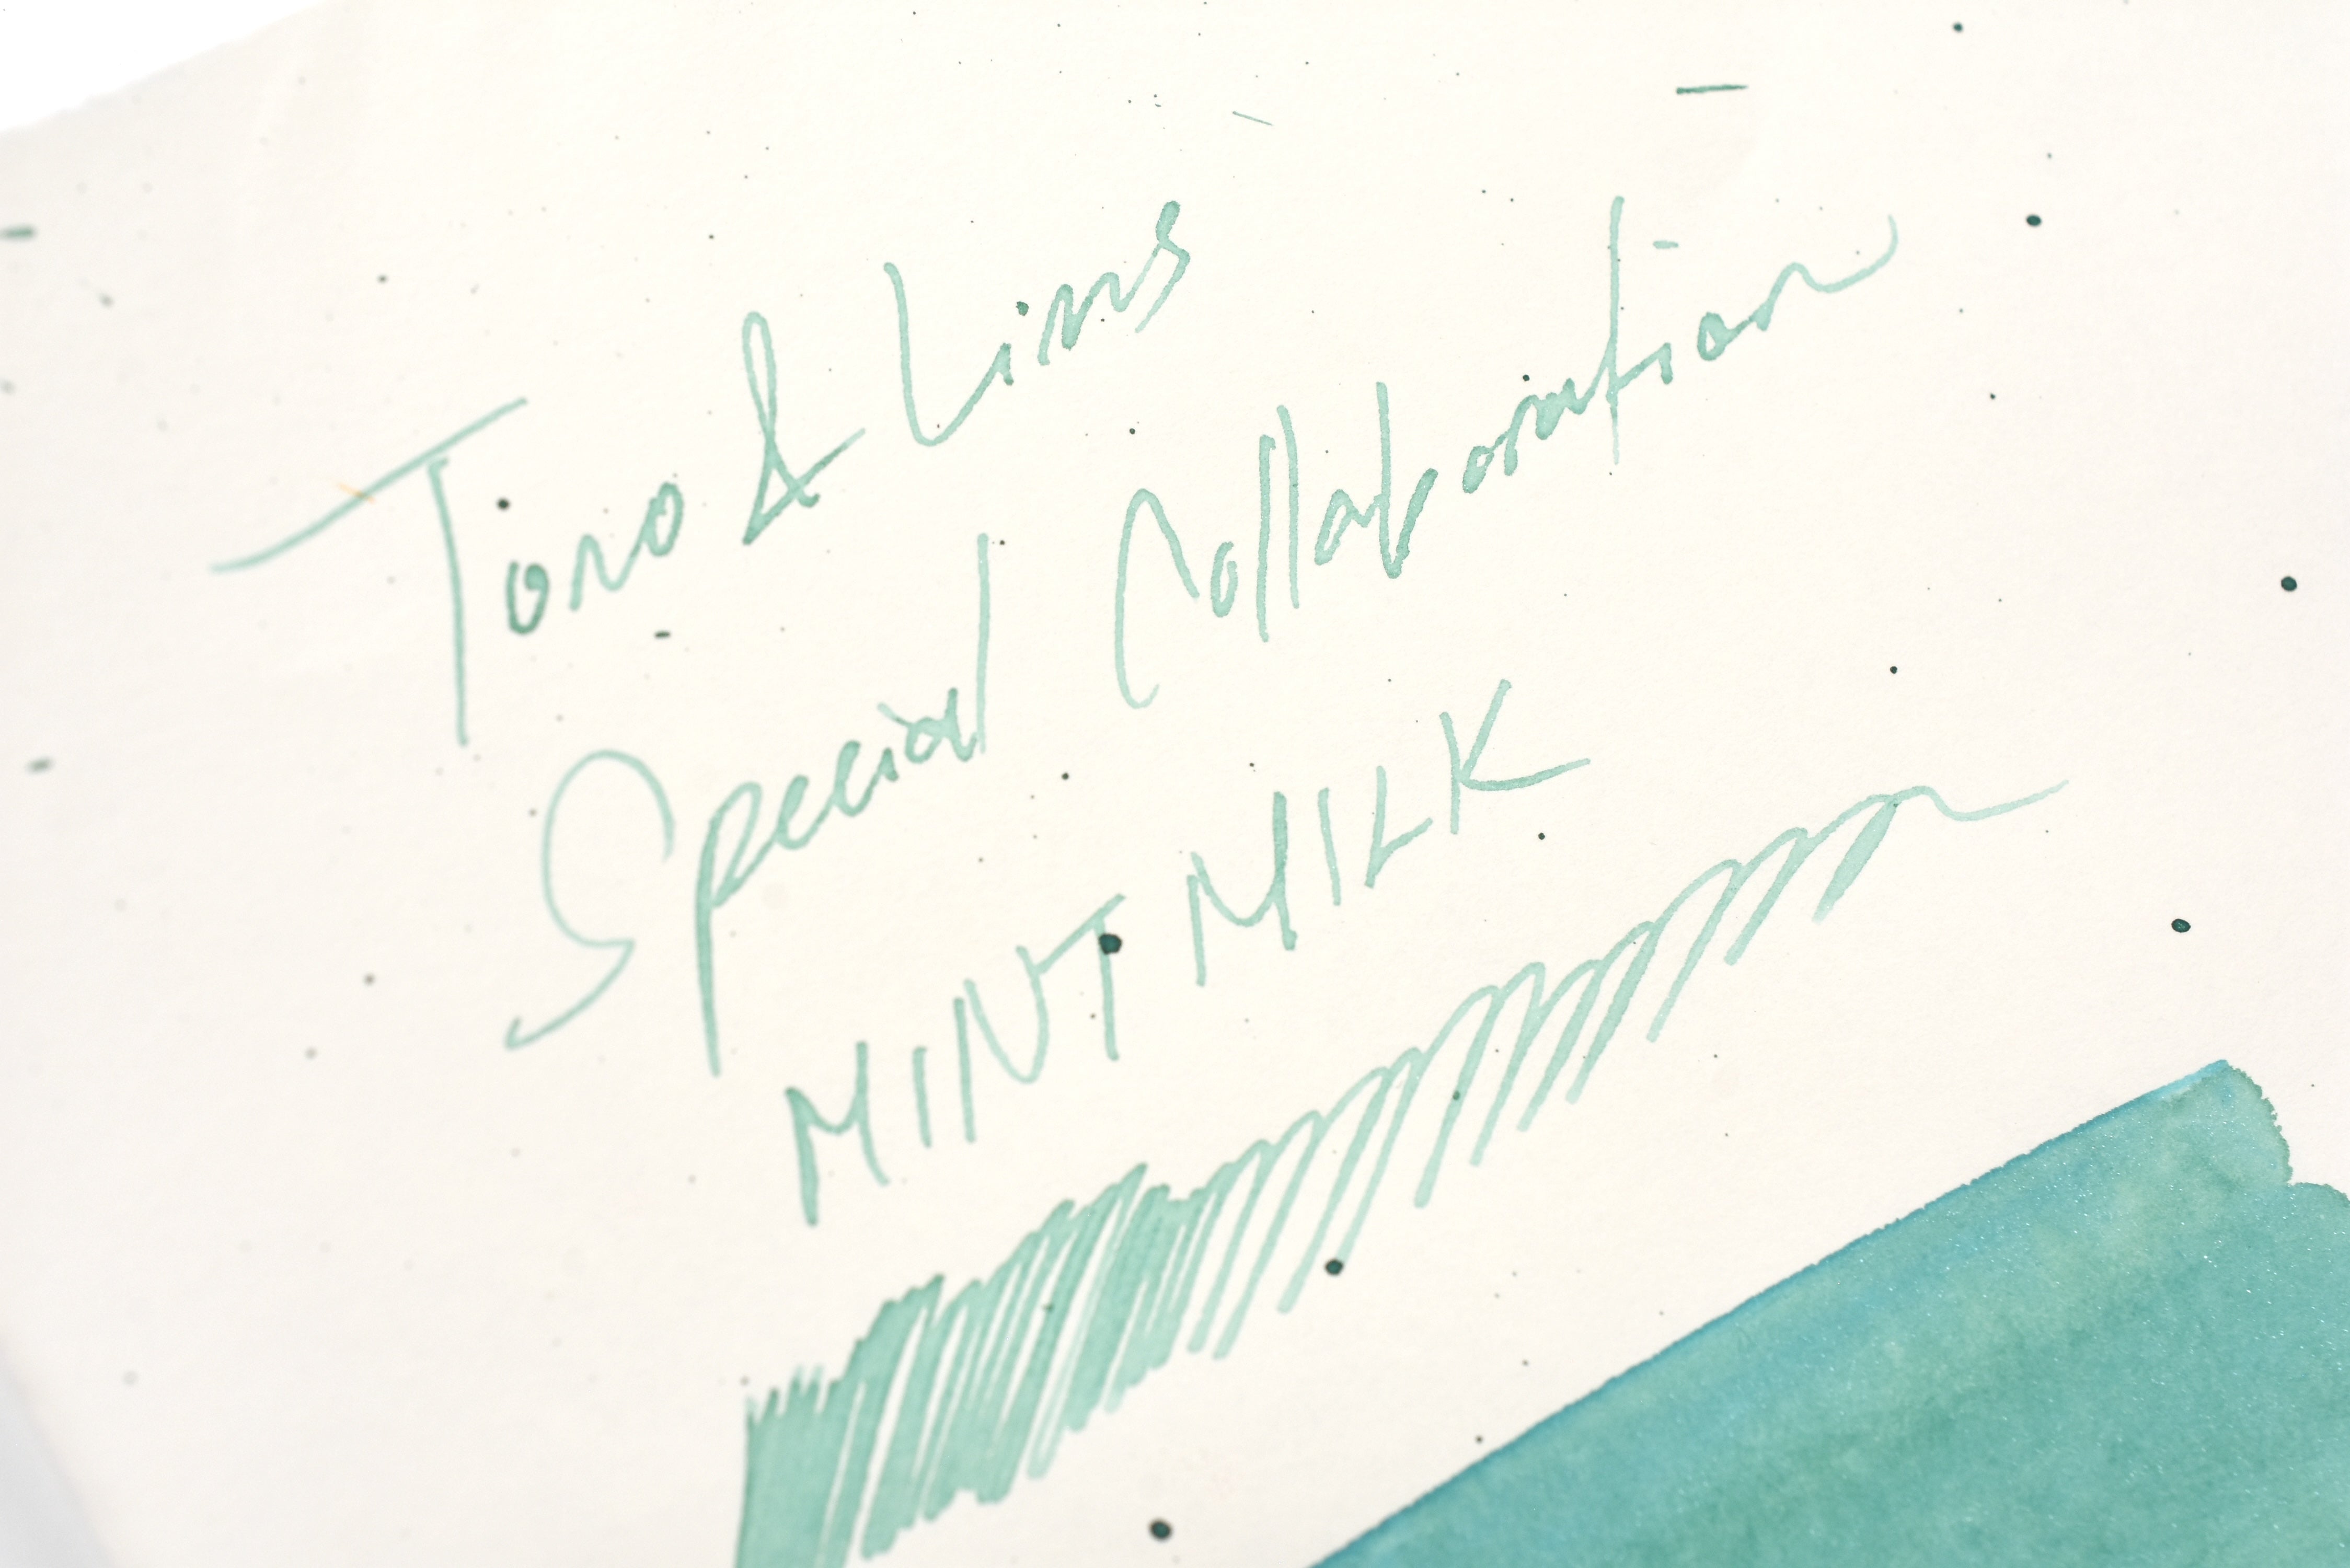 Toro & Lims
Special Collaboration
MINT MILK